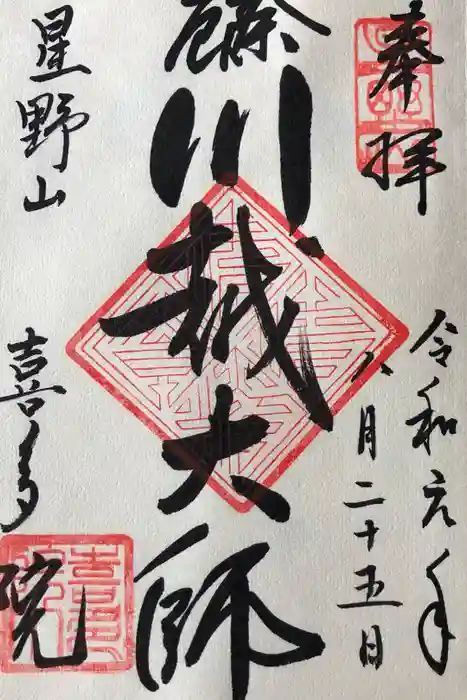 奉拝
令和元年
八月二十五日
川越大師
星野山
喜多院